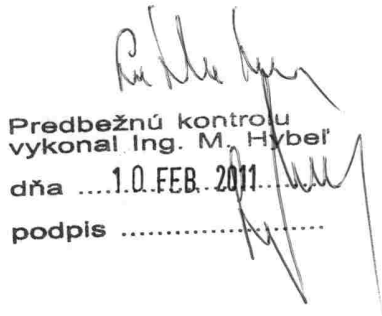 Predbežnú kontrolu
vykonal Ing. M. Hybeľ
dňa ....10. FEB. 2011........
podpis ........................